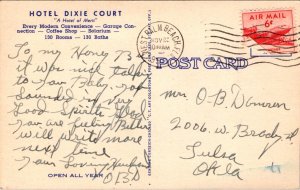 HOTEL DIXIE COURT
"A Hotel of Merit"
Every Modern Convenience — Garage Connection — Coffee Shop — Solarium
150 Rooms — 150 Baths
To my Honey B
it was nice talking
to you Fri.
Sounded in very
Good Spirits Glad
you are feeling Better
will write more
next time
your Loving Husband
O B D
OPEN ALL YEAR
WEST PALM BEACH, FLA.
NOV
AIR MAIL
6¢
POST CARD
Mrs O.B. Damren
2006. W. Brady St
Tulsa
Okla